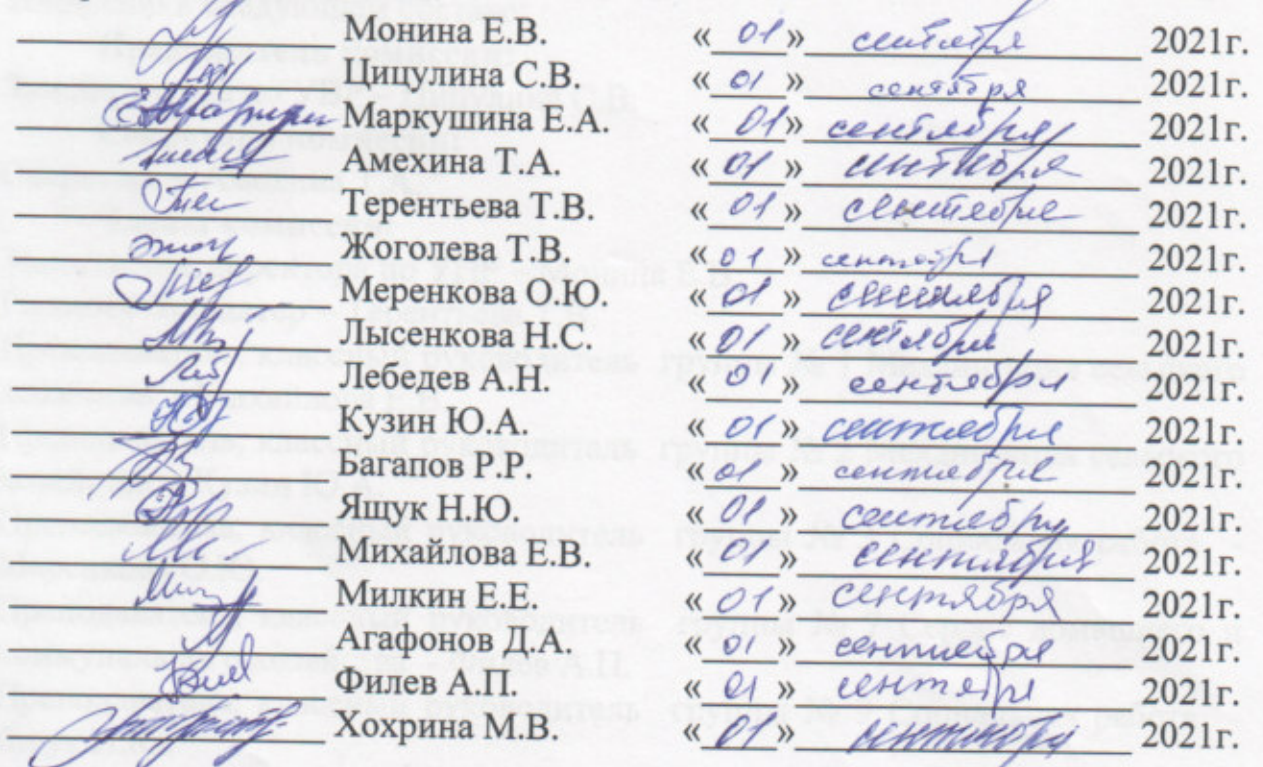 Монина Е.В. « 01 » сентября 2021г.
Цицулина С.В. « 01 » сентября 2021г.
Маркушина Е.А. « 01 » сентября 2021г.
Амехина Т.А. « 01 » сентября 2021г.
Терентьева Т.В. « 01 » сентября 2021г.
Жоголева Т.В. « 01 » сентября 2021г.
Меренкова О.Ю. « 01 » сентября 2021г.
Лысенкова Н.С. « 01 » сентября 2021г.
Лебедев А.Н. « 01 » сентября 2021г.
Кузин Ю.А. « 01 » сентября 2021г.
Багапов Р.Р. « 01 » сентября 2021г.
Ящук Н.Ю. « 01 » сентября 2021г.
Михайлова Е.В. « 01 » сентября 2021г.
Милкин Е.Е. « 01 » сентября 2021г.
Агафонов Д.А. « 01 » сентября 2021г.
Филев А.П. « 01 » сентября 2021г.
Хохрина М.В. « 01 » сентября 2021г.